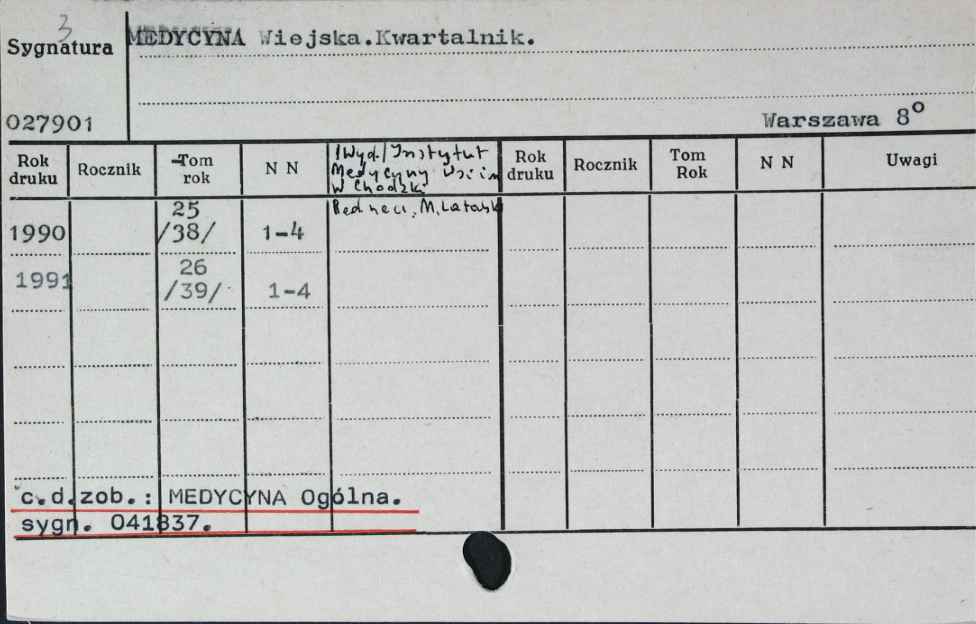 3
Sygnatura
MEDYCYNA Wiejska.Kwartalnik.
027901
Warszawa 8°
Rok druku Rocznik Tom rok N N /Wyd./ Instytut Rok druku Rocznik Tom Rok N N Uwagi
Medycyny Wsi im
W Chodźki
Red nacz. M. Latalski
25
1990 /38/ 1-4
26
1991 /39/ 1-4
c.d.zob.: MEDYCYNA Ogólna.
sygn. 041837.